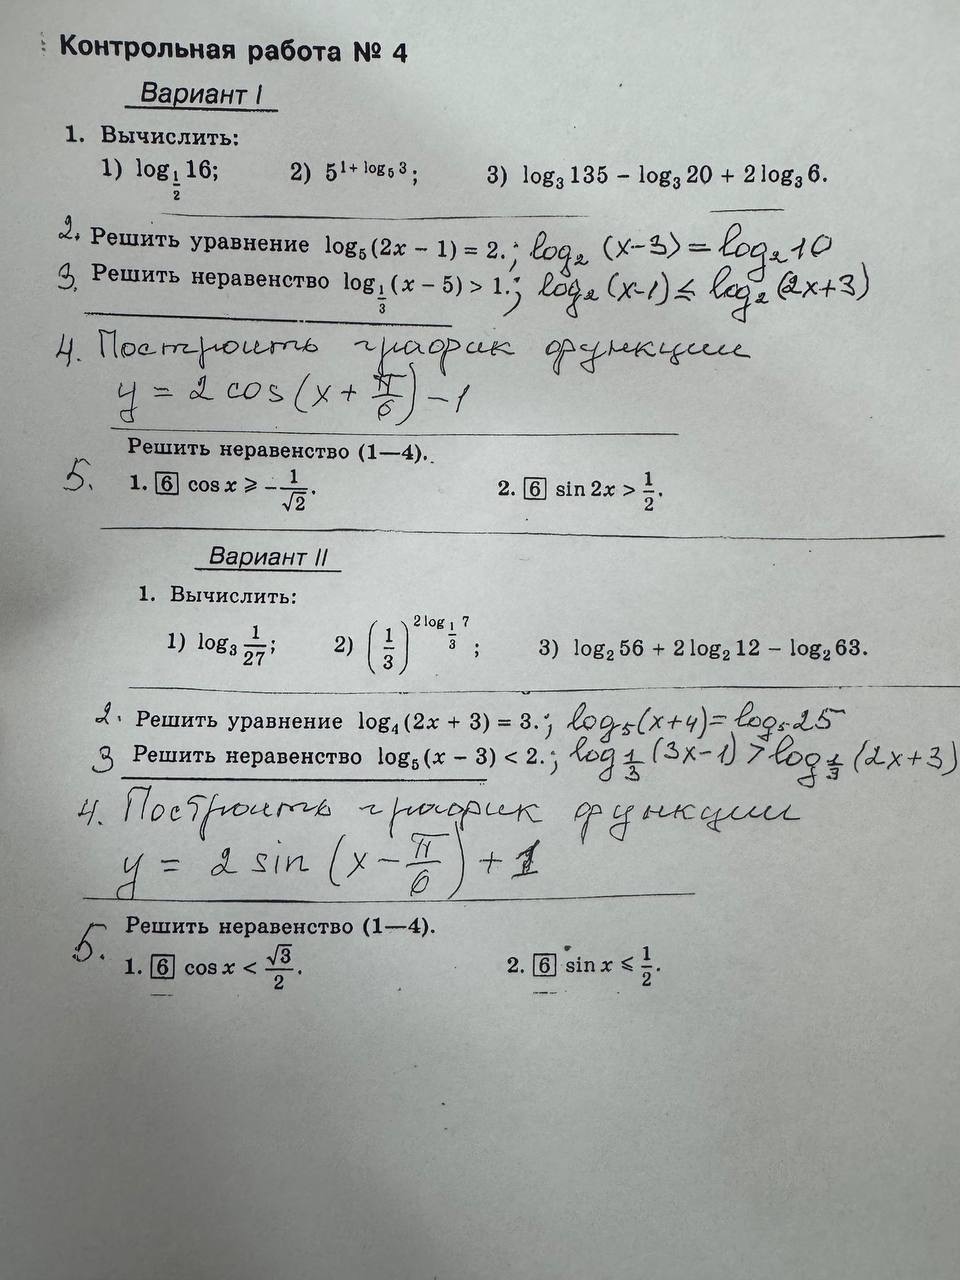 Контрольная работа № 4
Вариант I
1. Вычислить:
1) log_{1/2} 16; 2) 5^{1 + log_5 3}; 3) log_3 135 − log_3 20 + 2 log_3 6.
2. Решить уравнение log_5 (2x − 1) = 2.; log_2 (x−3) = log_2 10
3. Решить неравенство log_{1/3} (x − 5) > 1.; log_2 (x−1) ≤ log_2 (2x+3)
4. Построить график функции
y = 2 cos (x + π/6) − 1
Решить неравенство (1—4).
5. 1. 6 cos x ⩾ −1/√2. 2. 6 sin 2x > 1/2.
Вариант II
1. Вычислить:
1) log_3 1/27; 2) (1/3)^{2 log_{1/3} 7}; 3) log_2 56 + 2 log_2 12 − log_2 63.
2. Решить уравнение log_4 (2x + 3) = 3.; log_5 (x+4) = log_5 25
3 Решить неравенство log_5 (x − 3) < 2.; log_{1/3} (3x−1) > log_{1/3} (2x+3)
4. Построить график функции
y = 2 sin (x − π/6) + 1
5. Решить неравенство (1—4).
1. 6 cos x < √3/2. 2. 6 sin x ⩽ 1/2.